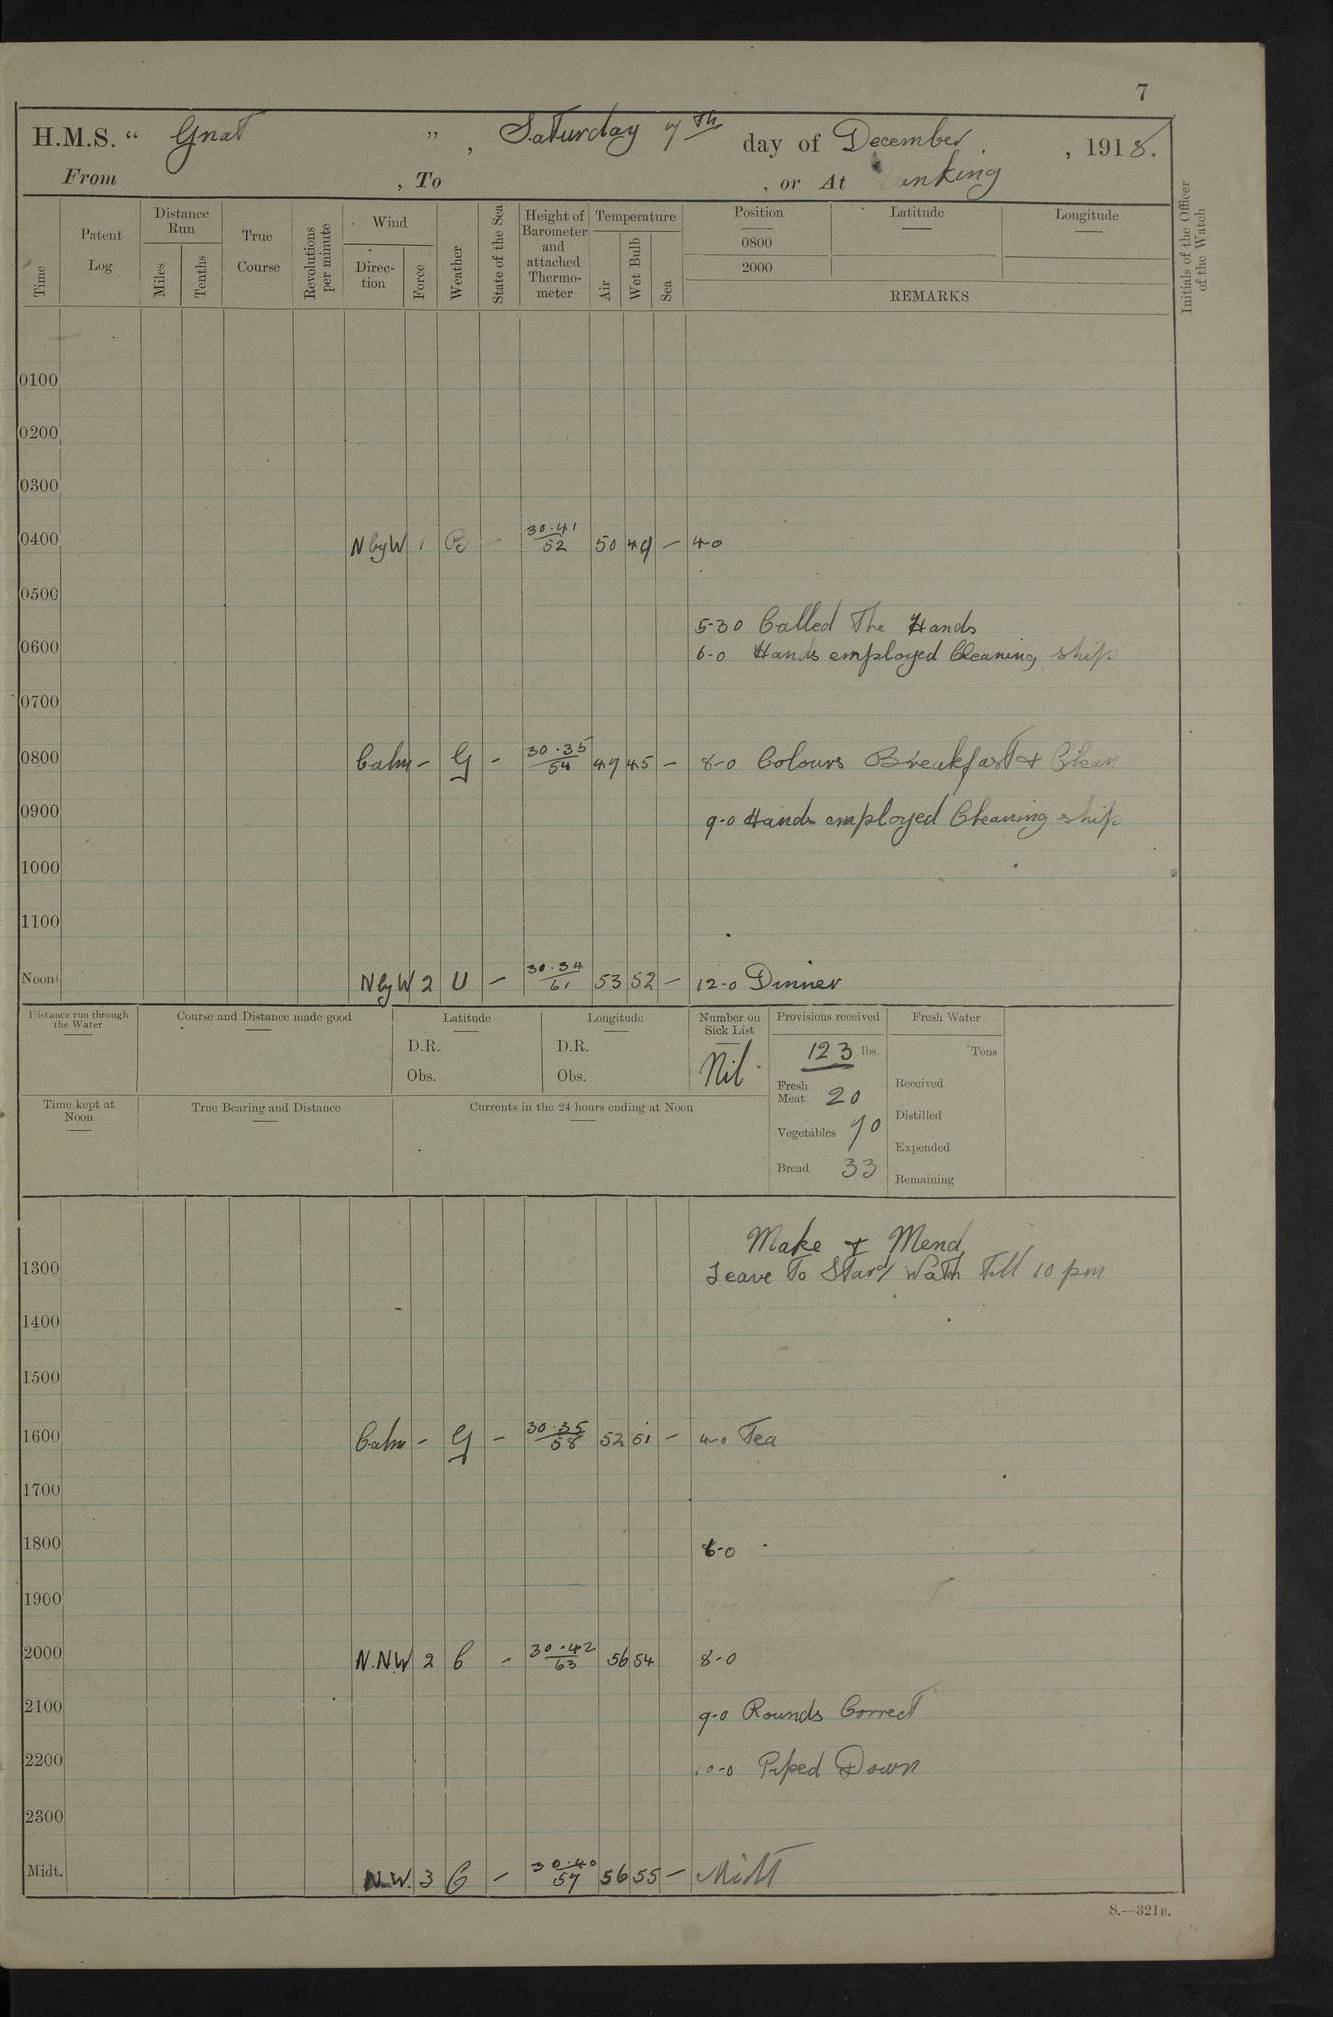 7
H.M.S. “ Gnat ” , Saturday 7th day of December , 1918.
From , To , or At anking
Time
Patent Log
Distance Run
Miles
Tenths
True Course
Revolutions per minute
Wind
Direction
Force
Weather
State of the Sea
Height of Barometer and attached Thermometer
Temperature
Air
Wet Bulb
Sea
Position
0800
2000
Latitude
Longitude
REMARKS
Initials of the Officer of the Watch
0100
0200
0300
0400 N by W 1 B - 30.41/52 50 49 - 4-0
0500
5-30 Called The Hands
0600 6-0 Hands employed Cleaning ship
0700
0800 Calm - G - 30.35/54 47 45 - 8-0 Colours Breakfast & Clean
0900 9-0 Hands employed Cleaning ship
1000
1100
Noon N by W 2 U - 30.34/61 53 52 - 12-0 Dinner
Distance run through the Water
Course and Distance made good
Latitude
D.R.
Obs.
Longitude
D.R.
Obs.
Number on Sick List
Nil
Provisions received
123 lbs.
Fresh Meat 20
Vegetables 70
Bread 33
Fresh Water
Tons
Received
Distilled
Expended
Remaining
Time kept at Noon
True Bearing and Distance
Currents in the 24 hours ending at Noon
Make & Mend
1300 Leave To Stard Watch Till 10 pm
1400
1500
1600 Calm - G - 30.35/58 52 51 - 4-0 Tea
1700
1800 6-0
1900
2000 N.N.W 2 C - 30.42/63 56 54 8-0
2100 9-0 Rounds Correct
2200 10-0 Piped Down
2300
Midt. N.W. 3 C - 30.40/57 56 55 - Midt
S.—321B.